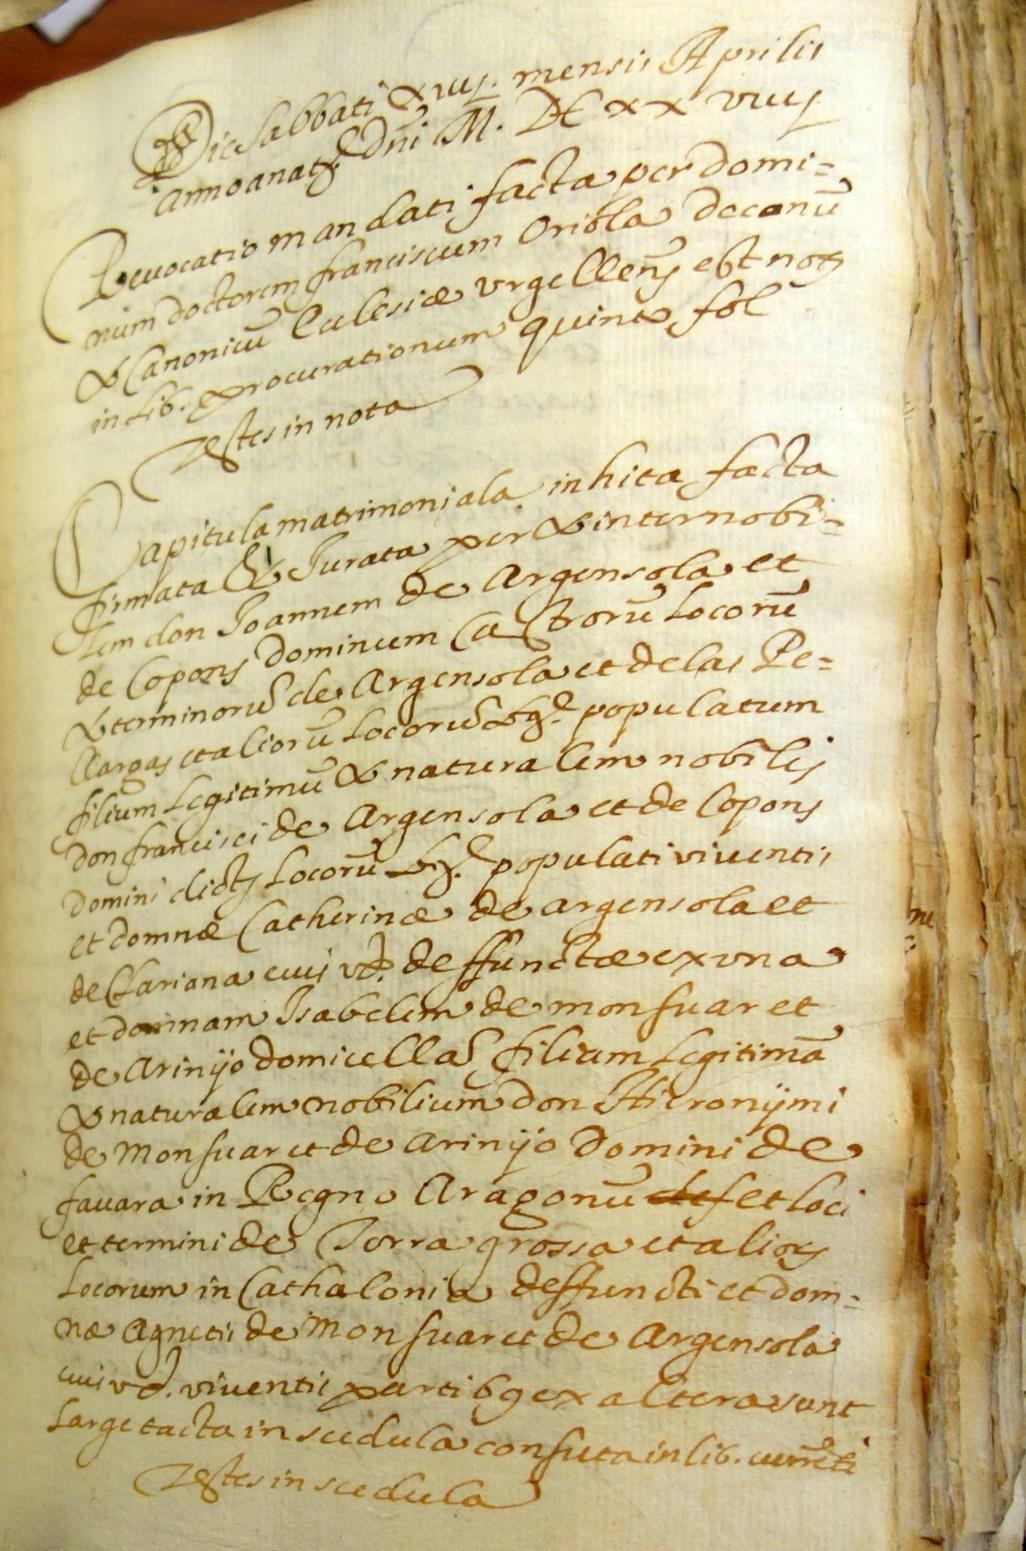 Die Sabbati xviiij. mensis Aprilis
anno a nat.e Dñi M. DC xx viiij
Revocatio mandati facta per domi=
num doctorem franciscum Oriola decanũ
& Canonicũ Eclesiæ Urgelleñ est not.
in lib. procurationum quinto fol
Testes in nota
Capitula matrimoniala inhita facta
firmata & Jurata per & inter nobi=
lem don Joannem de Argensola et
de Copons Dominum Castrorũ Locorũ
& terminorũ de Argensola et de las Pe=
llargas et aliorũ Locorũ populatum
filium Legitimũ & naturalem nobilis
don francisci de Argensola et de Copons
Domini Locorũ populati viventis
et domnæ Catherinæ de argensola et
de Clariana eius deffunctæ ex una
et domnam Isabelem de monsuar et
de Arinyo domicellaʃ filiam Legitimã
& naturalem nobilium don Hieronymi
de Monsuar et de Arinyo Domini de
favara in Regno Aragonũ et loci
et termini de Torra grossa et alior.
Locorum in Cathalonia deffuncti et dom=
næ Agnetis de Monsuar et de Argensola
viventis partibꝯ ex altera sunt
Large tacta in scedula consuta in lib.
Testes in scedula